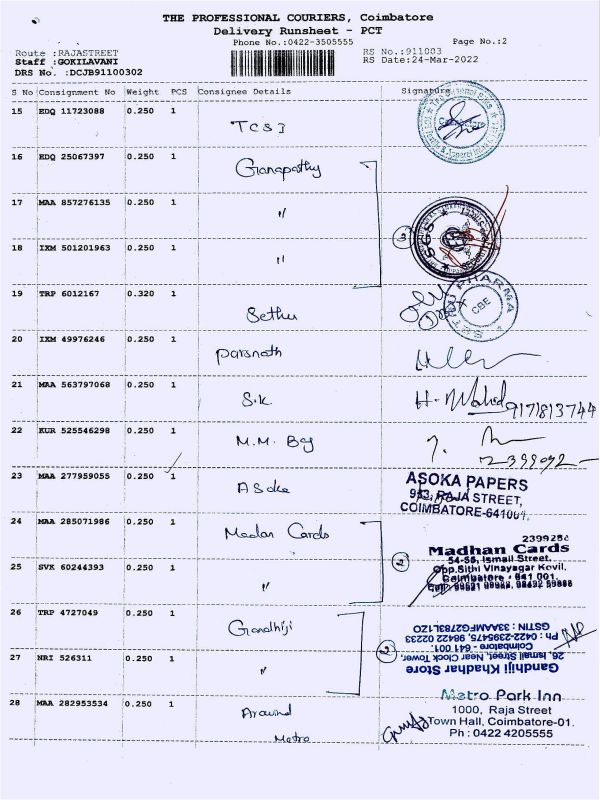 THE PROFESSIONAL COURIERS, Coimbatore
Delivery Runsheet - PCT
Phone No.:0422-3505555 Page No.:2
Route :RAJASTREET RS No.:911003
Staff :GOKILAVANI RS Date:24-Mar-2022
DRS No. :DCJB91100302
S No Consignment No Weight PCS Consignee Details Signature
15 EDQ 11723088 0.250 1
TCSI
16 EDQ 25067397 0.250 1
Ganapathy
17 MAA 857276135 0.250 1
"
3
SGS
18 IXM 501201963 0.250 1
"
19 TRP 6012167 0.320 1
Sethu
PHARMA
CBE
20 IXM 49976246 0.250 1
Parsnath
21 MAA 563797068 0.250 1
S.K
9171813744
22 KUR 525546298 0.250 1
M.M. Bag
23 MAA 277959055 0.250 1
Asoka
ASOKA PAPERS
RAJA STREET,
COIMBATORE-641001.
24 MAA 285071986 0.250 1
Madan Cards
2
Madhan Cards
54-55, Ismail Street.
Opp.Sithi Vinayagar Kovil.
Coimbatore - 641 001.
25 SVK 60244393 0.250 1
"
26 TRP 4727049 0.250 1
Gandhiji
2
Gandhiji Khadhar Store
26, Ismail Street, Near Clock Tower,
Coimbatore - 641 001.
Ph : 0422-2395475, 98422 02233
GSTIN : 33AAMFG2783L1ZO
27 NRI 526311 0.250 1
"
28 MAA 282953534 0.250 1
Aravind
Metro
Metro Park Inn
1000, Raja Street
Town Hall, Coimbatore-01.
Ph : 0422 4205555